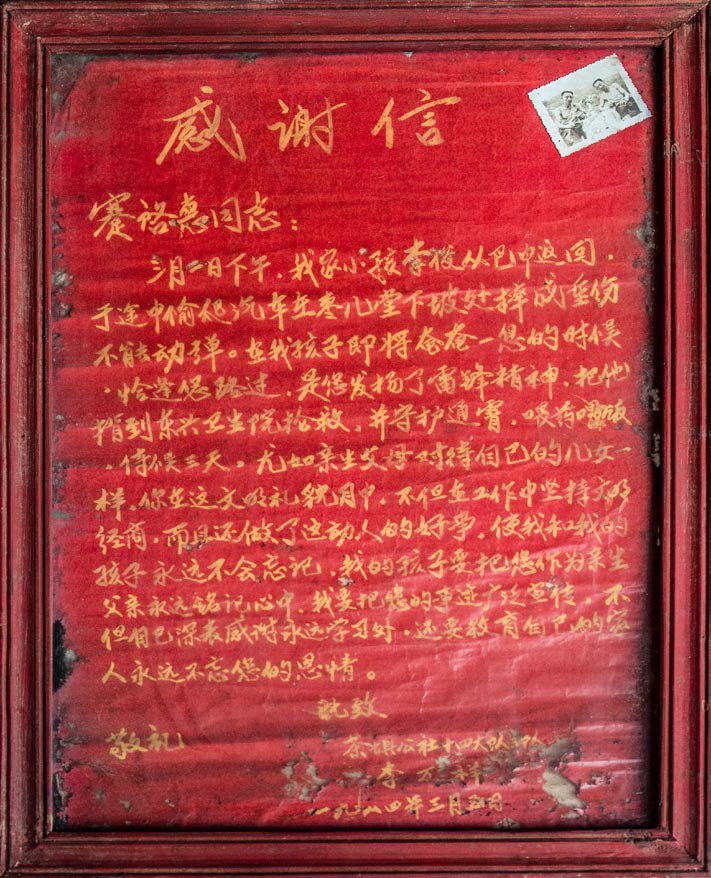 感谢信
蹇裕惠同志:
三月二日下午,我家小孩李俊从巴中返回,
于途中偷爬汽车在枣儿垭下坡处摔成重伤
不能动弹。在我孩子即将奄奄一息的时候
,恰逢您路过,是您发扬了雷锋精神,把他
指到东兴卫生院抢救,并守护通霄,喂药喂饭
,侍候三天,尤如亲生父母对待自己的儿女一
样,你在这文明礼貌月中,不但在工作中坚持文明
经商,而且还做了这动人的好事,使我和我的
孩子永远不会忘记,我的孩子要把您作为亲生
父亲永远铭记心中,我要把您的事迹广泛宣传 不
但自己深表感谢永远学习好,还要教育自己的家
人永远不忘您的恩情。
此致
敬礼
茶坝公社十四大队 队
李 万
一九八四年三月五日